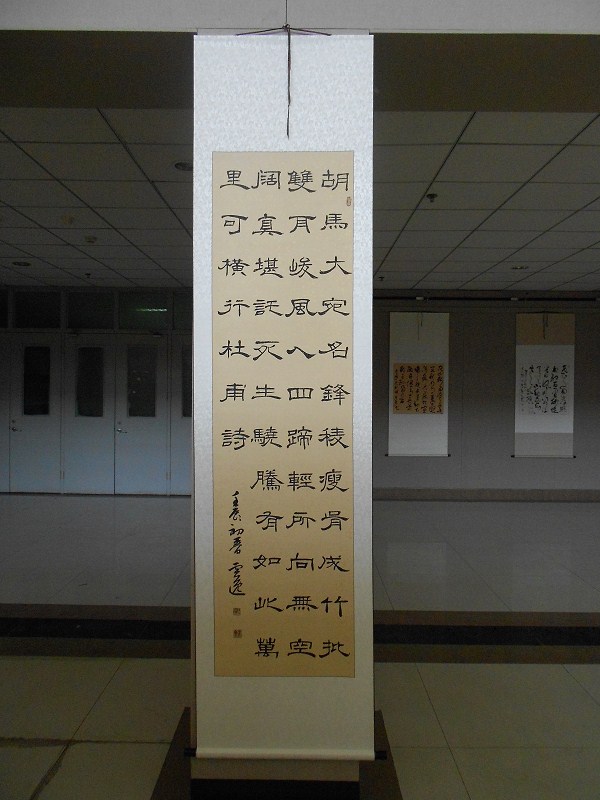 胡馬大宛名鋒稜瘦骨成竹批
雙耳峻風入四蹄輕所向無空
闊真堪託死生驍騰有如此萬
里可橫行杜甫詩
壬辰初春雲逸